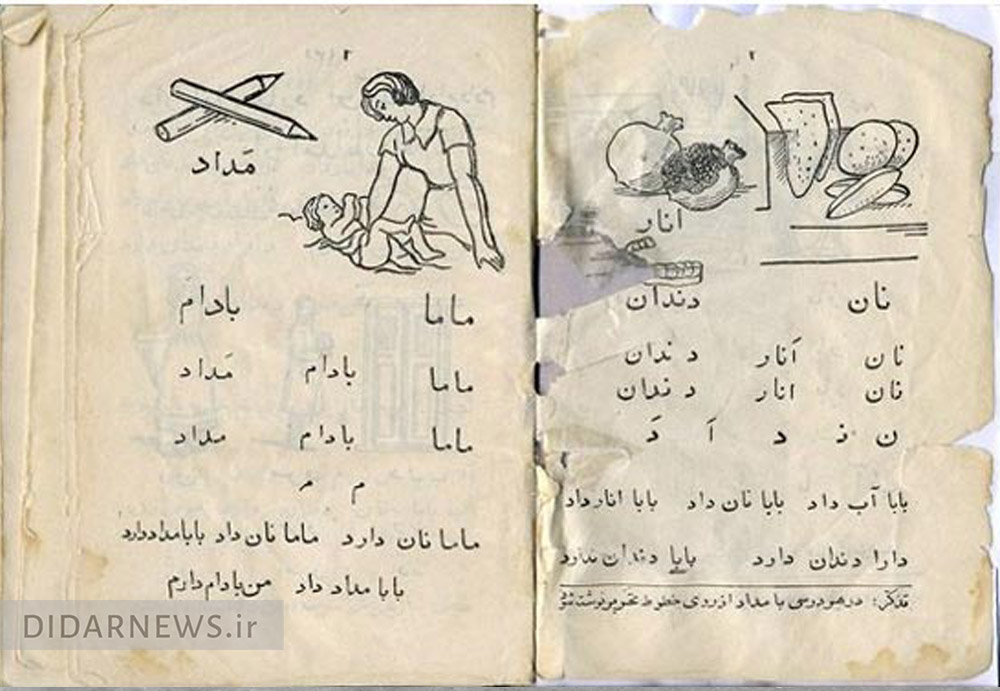 ۲
انار
نان دندان
نان اَنار دندان
نان انار دندان
ن نـ د اَ دَ
بابا آب داد بابا نان داد بابا انار داد
دارا دندان دارد بابا دندان ندارد
تذکر: در هر درسی با مداد از روی خطوط
۳
مَداد
ماما بادام
ماما بادام مَداد
ماما بادام مداد
م مـ
ماما نان دارد ماما نان داد بابا مداد دارد
بابا مداد داد من بادام دارم
DIDARNEWS.ir